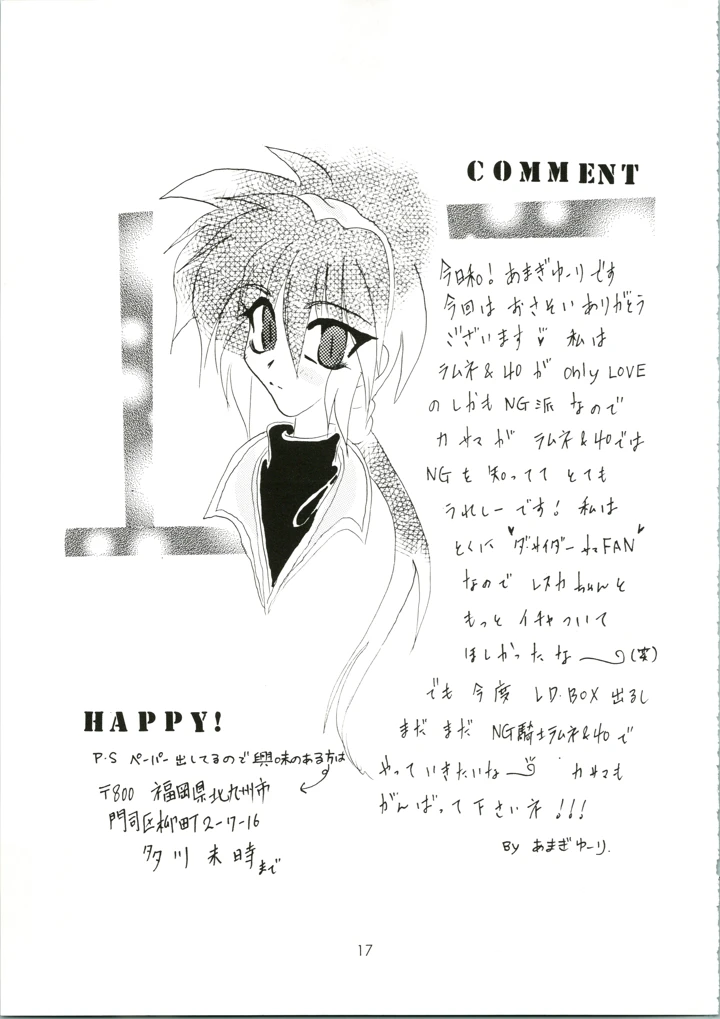 COMMENT
今日和! あまぎゆーりです
今回は おさそい ありがとう
ございます♥ 私は
ラムネ&40 が only LOVE
の しかも NG派 なので
カサマ が ラムネ&40では
NG を 知ってて とても
うれしーです! 私は
とくに ♥ダ・サイダーサマFAN♥
なので レスカちゃんと
もっと イチャついて
ほしかったな〜(笑)
でも 今度 LD・BOX 出るし
まだ まだ NG騎士ラムネ&40で
やって いきたいな〜 カサマも
がんばって下さいネ!!!
By あまぎゆーり.
HAPPY!
P・S ペーパー出してるので興味のある方は
〒800 福岡県北九州市
門司区柳町2-7-16
多川 未時まで
17